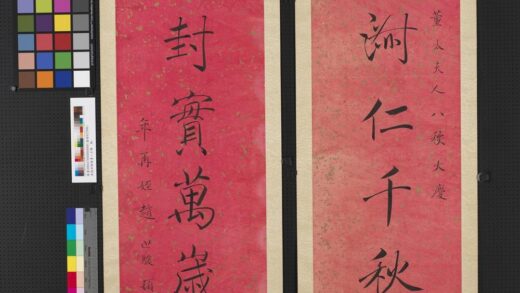 董太夫人八秩大慶
仁千秋
封實萬歲
年再姪趙世駿頓